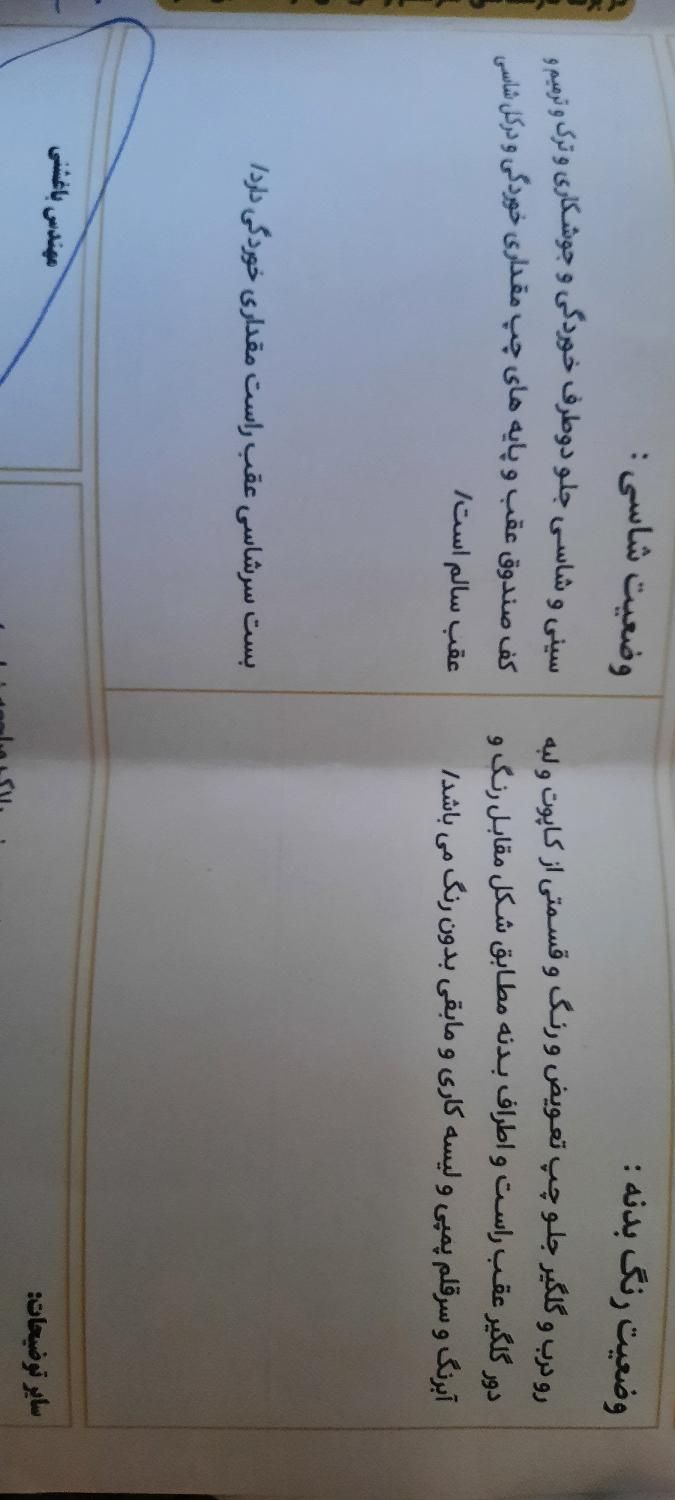 وضعیت رنگ بدنه :
رو درب و گلگیر جلو چپ تعویض و رنگ و قسمتی از کاپوت و لبه
دور گلگیر عقب راست و اطراف بدنه مطابق شکل مقابل رنگ و
آبرنگ و سرقلم پمپی و لیسه کاری و مابقی بدون رنگ می باشد/
وضعیت شاسی :
سینی و شاسی جلو دوطرف خوردگی و جوشکاری و ترک و ترمیم و
کف صندوق عقب و پایه های چپ مقداری خوردگی و درکل شاسی
عقب سالم است/
بست سرشاسی عقب راست مقداری خوردگی دارد/
سایر توضیحات:
مهندس باغشنی